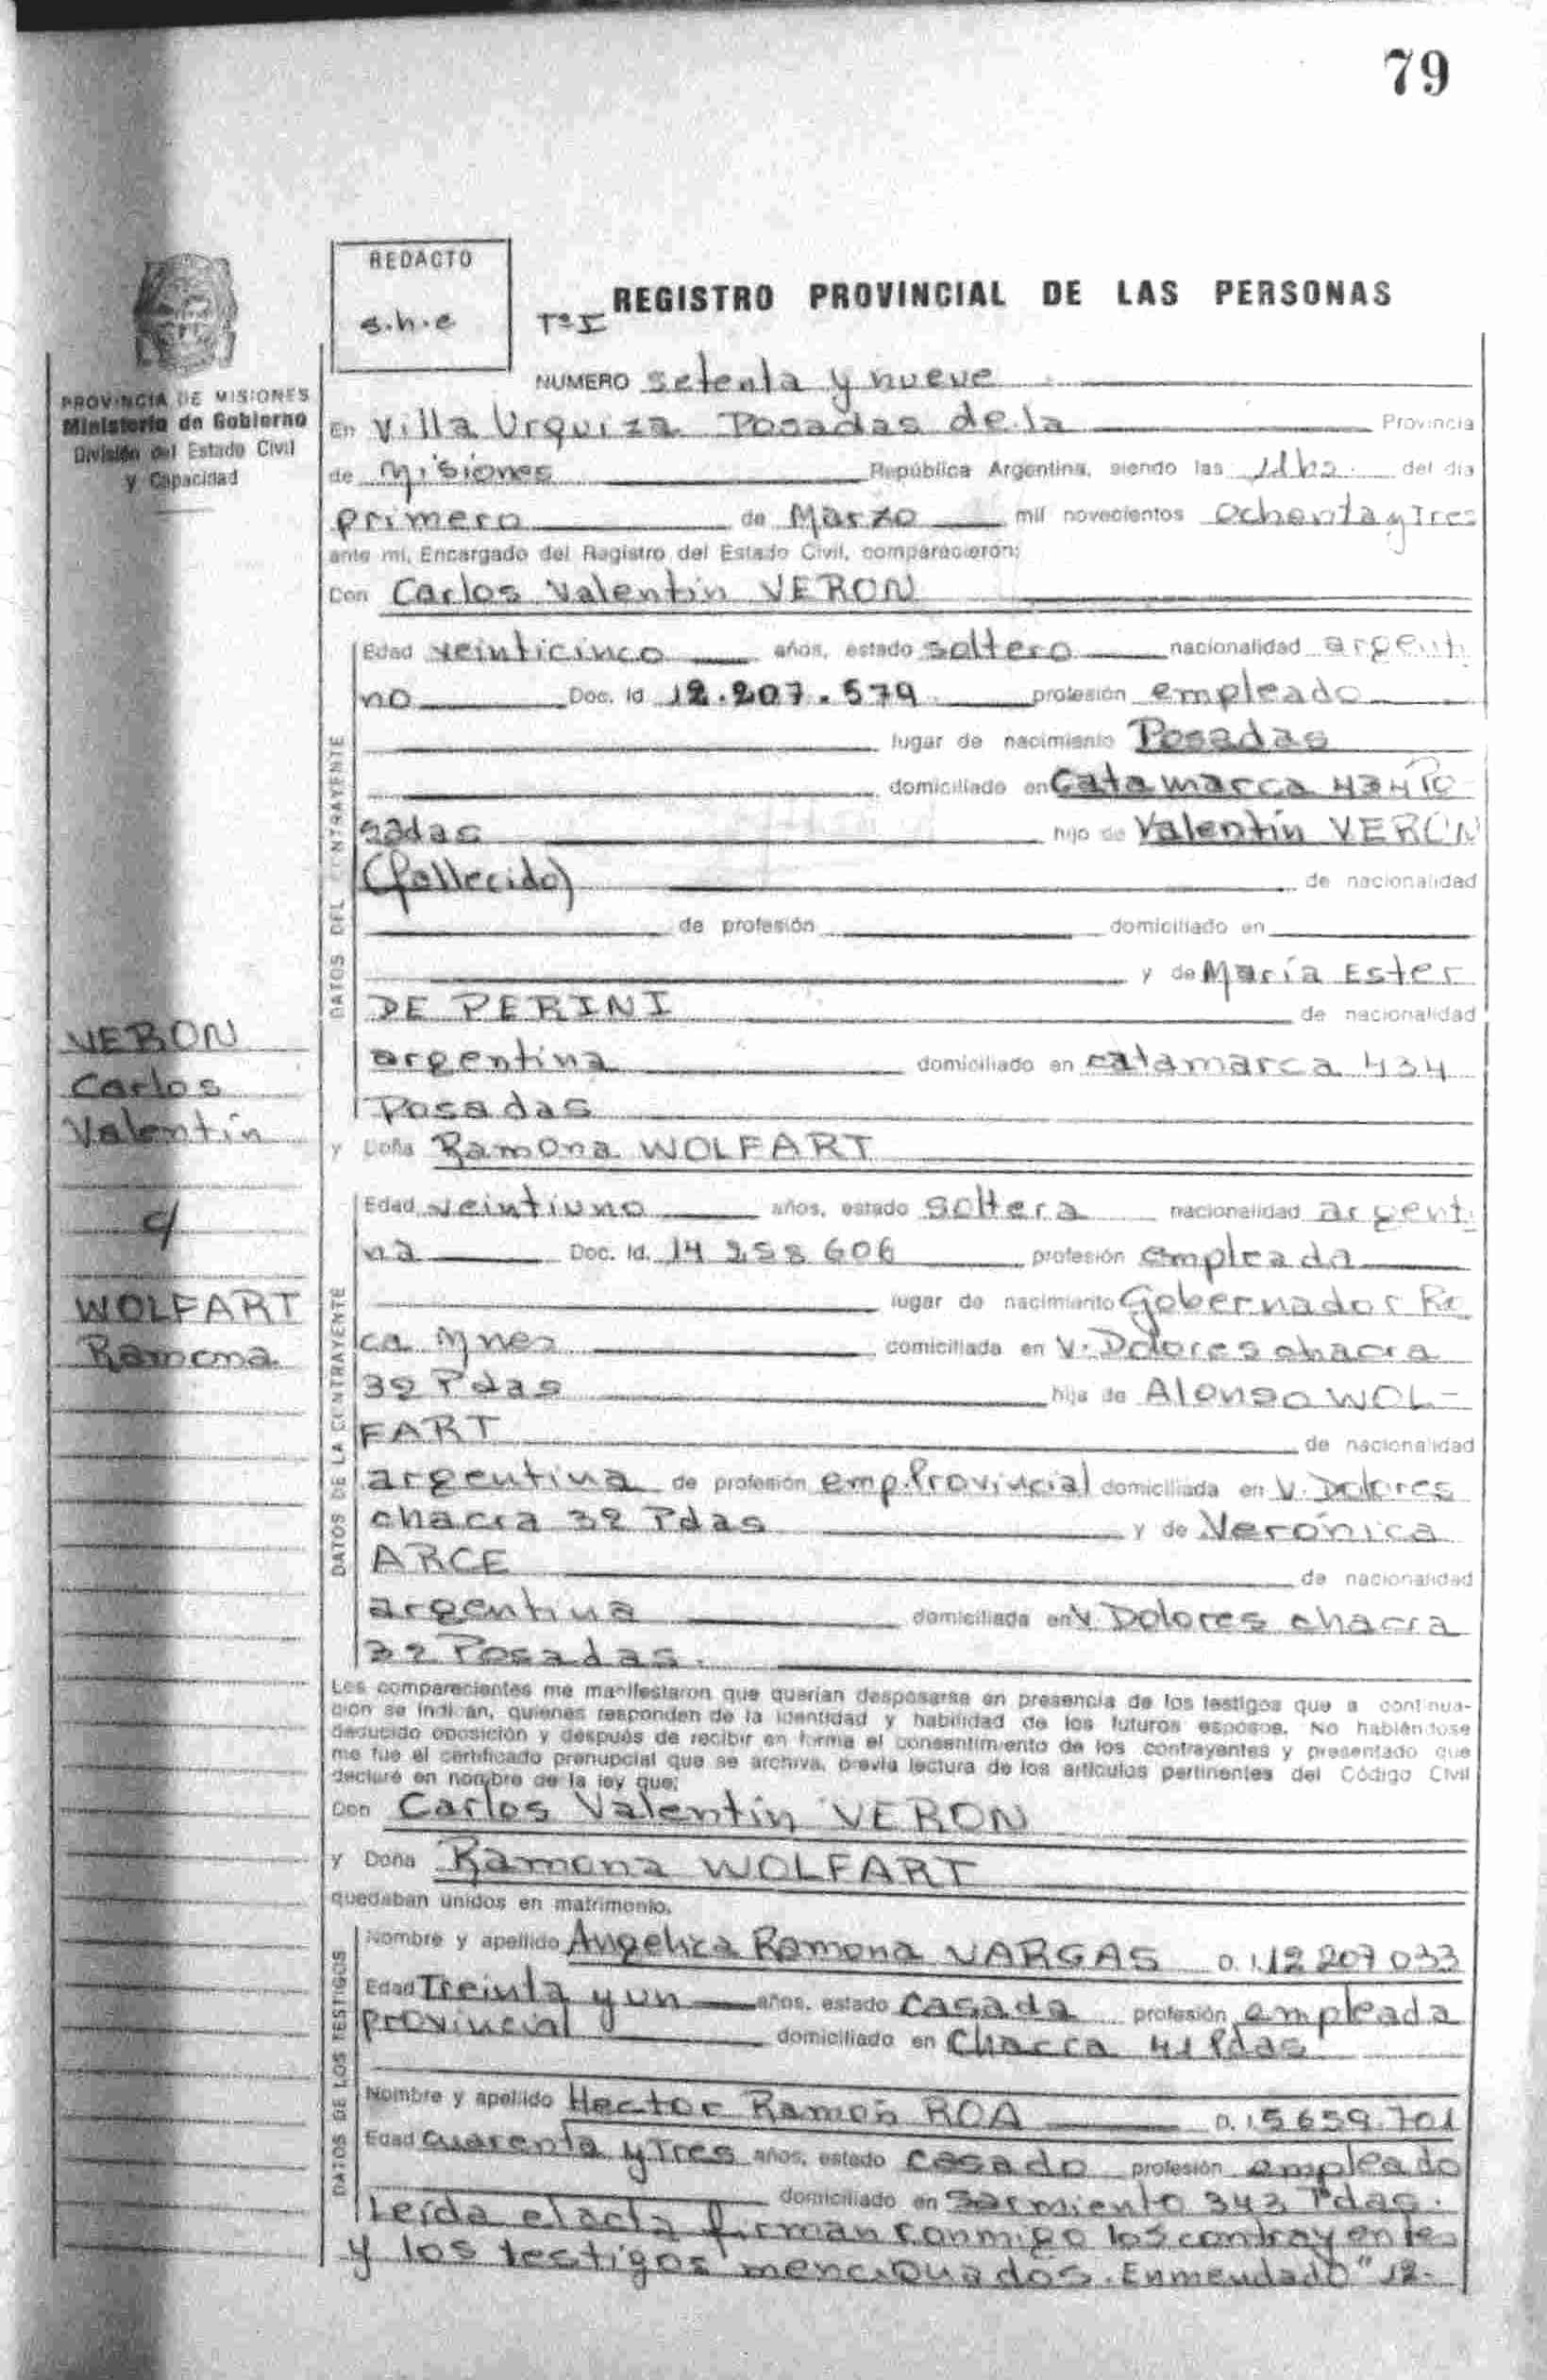 79
REDACTO
s.h.e
Tº I
REGISTRO PROVINCIAL DE LAS PERSONAS
PROVINCIA DE MISIONES
Ministerio de Gobierno
División del Estado Civil
y Capacidad
NUMERO setenta y nueve
En Villa Urquiza Posadas de la Provincia
de Misiones República Argentina, siendo las del día
primero de Marzo mil novecientos ochenta y Tres
ante mi, Encargado del Registro del Estado Civil, comparecieron:
Don Carlos Valentín VERON
DATOS DEL CONTRAYENTE
Edad veinticinco años, estado soltero nacionalidad argenti
no Doc. Id 12.207.579 profesión empleado
lugar de nacimiento Posadas
domiciliado en Catamarca 434 Po
sadas hijo de Valentín VERON
(fallecido) de nacionalidad
de profesión domiciliado en
y de María Ester
DE PERINI de nacionalidad
argentina domiciliado en catamarca 434
Posadas
VERON
Carlos
Valentín
c/
WOLFART
Ramona
y Doña Ramona WOLFART
DATOS DE LA CONTRAYENTE
Edad veintiuno años, estado soltera nacionalidad argenti
na Doc. Id. 14 258 606 profesión empleada
lugar de nacimiento Gobernador Ro
ca Mnes domiciliada en V. Dolores chacra
32 Pdas hija de Alonso WOL-
FART de nacionalidad
argentina de profesión emp. Provincial domiciliada en V. Dolores
chacra 32 Pdas y de Verónica
ARCE de nacionalidad
argentina domiciliada en V. Dolores chacra
32 Posadas.
Los comparecientes me manifestaron que querían desposarse en presencia de los testigos que a continua-
ción se indican, quienes responden de la identidad y habilidad de los futuros esposos. No habiéndose
deducido oposición y después de recibir en forma el consentimiento de los contrayentes y presentado que
me fue el certificado prenupcial que se archiva, previa lectura de los artículos pertinentes del Código Civil
declaré en nombre de la ley que:
Don Carlos Valentín VERON
y Doña Ramona WOLFART
quedaban unidos en matrimonio.
DATOS DE LOS TESTIGOS
Nombre y apellido Angelica Ramona VARGAS D.I. 12 207 033
Edad Treinta y un años, estado casada profesión empleada
provincial domiciliado en Chacra 41 Pdas
Nombre y apellido Hector Ramón ROA D.I. 5659.701
Edad cuarenta y Tres años, estado casado profesión empleado
domiciliado en Sarmiento 343 Pdas.
Leída el acta firman conmigo los contrayentes
y los testigos mencionados. Enmendado "12.